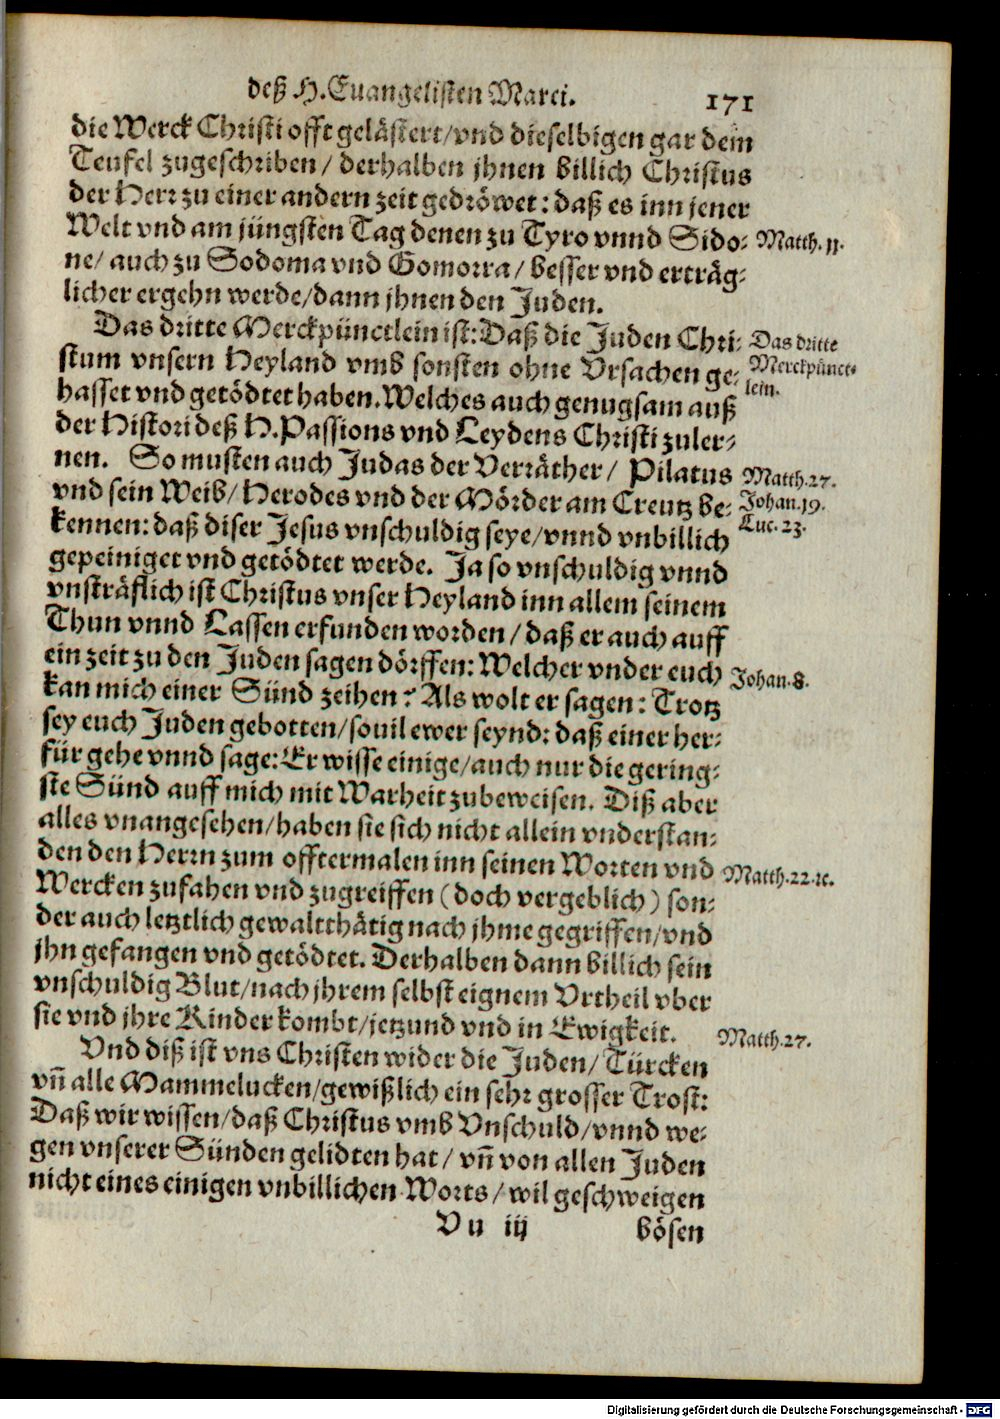 deß H. Euangelisten Marci. 171
die Werck Christi offt gelästert/vnd dieselbigen gar dem
Teufel zugeschriben/ derhalben jhnen billich Christus
der Herr zu einer andern zeit gedröwet: daß es inn jener
Welt vnd am jüngsten Tag denen zu Tyro vnnd Sido- Matth. 11.
ne/ auch zu Sodoma vnd Gomorra/ besser vnd erträg-
licher ergehn werde/dann jhnen den Juden.
Das dritte Merckpünctlein ist: Daß die Juden Chri- Das dritte
stum vnsern Heyland vmb sonsten ohne Vrsachen ge- Merckpünct-
hasset vnd getödtet haben. Welches auch genugsam auß lein.
der Histori deß H. Passions vnd Leydens Christi zuler-
nen. So musten auch Judas der Verräther/ Pilatus Matth. 27.
vnd sein Weib/ Herodes vnd der Mörder am Creutz be- Johan. 19.
kennen: daß diser Jesus vnschuldig seye/vnnd vnbillich Luc. 23.
gepeiniget vnd getödtet werde. Ja so vnschuldig vnnd
vnsträflich ist Christus vnser Heyland inn allem seinem
Thun vnnd Lassen erfunden worden/ daß er auch auff
ein zeit zu den Juden sagen dörffen: Welcher vnder euch Johan. 8.
kan mich einer Sünd zeihen? Als wolt er sagen: Trotz
sey euch Juden gebotten/souil ewer seynd: daß einer her-
für gehe vnnd sage: Er wisse einige/auch nur die gering-
ste Sünd auff mich mit Warheit zubeweisen. Diß aber
alles vnangesehen/haben sie sich nicht allein vnderstan-
den den Herrn zum offtermalen inn seinen Worten vnd Matth. 22. ꝛc.
Wercken zufahen vnd zugreiffen (doch vergeblich) son-
der auch letztlich gewaltthätig nach jhme gegriffen/vnd
jhn gefangen vnd getödtet. Derhalben dann billich sein
vnschuldig Blut/nach jhrem selbst eignem Vrtheil vber
sie vnd jhre Kinder kombt/jetzund vnd in Ewigkeit. Matth. 27.
Vnd diß ist vns Christen wider die Juden/ Türcken
vñ alle Mammelucken/gewißlich ein sehr grosser Trost:
Daß wir wissen/daß Christus vmb Vnschuld/vnnd we-
gen vnserer Sünden gelidten hat/ vñ von allen Juden
nicht eines einigen vnbillichen Worts/ wil geschweigen
Vu iij bösen
Digitalisierung gefördert durch die Deutsche Forschungsgemeinschaft - DFG